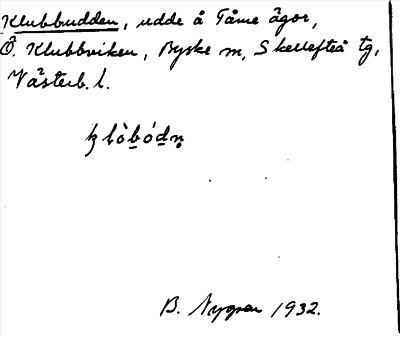 Klubbudden, udde å Tåme ägor,
Ö. Klubbviken, Byske sn, Skellefteå tg,
Västerb. l.
ḵlòb̲ód̲n̥
B. Nygren 1932.